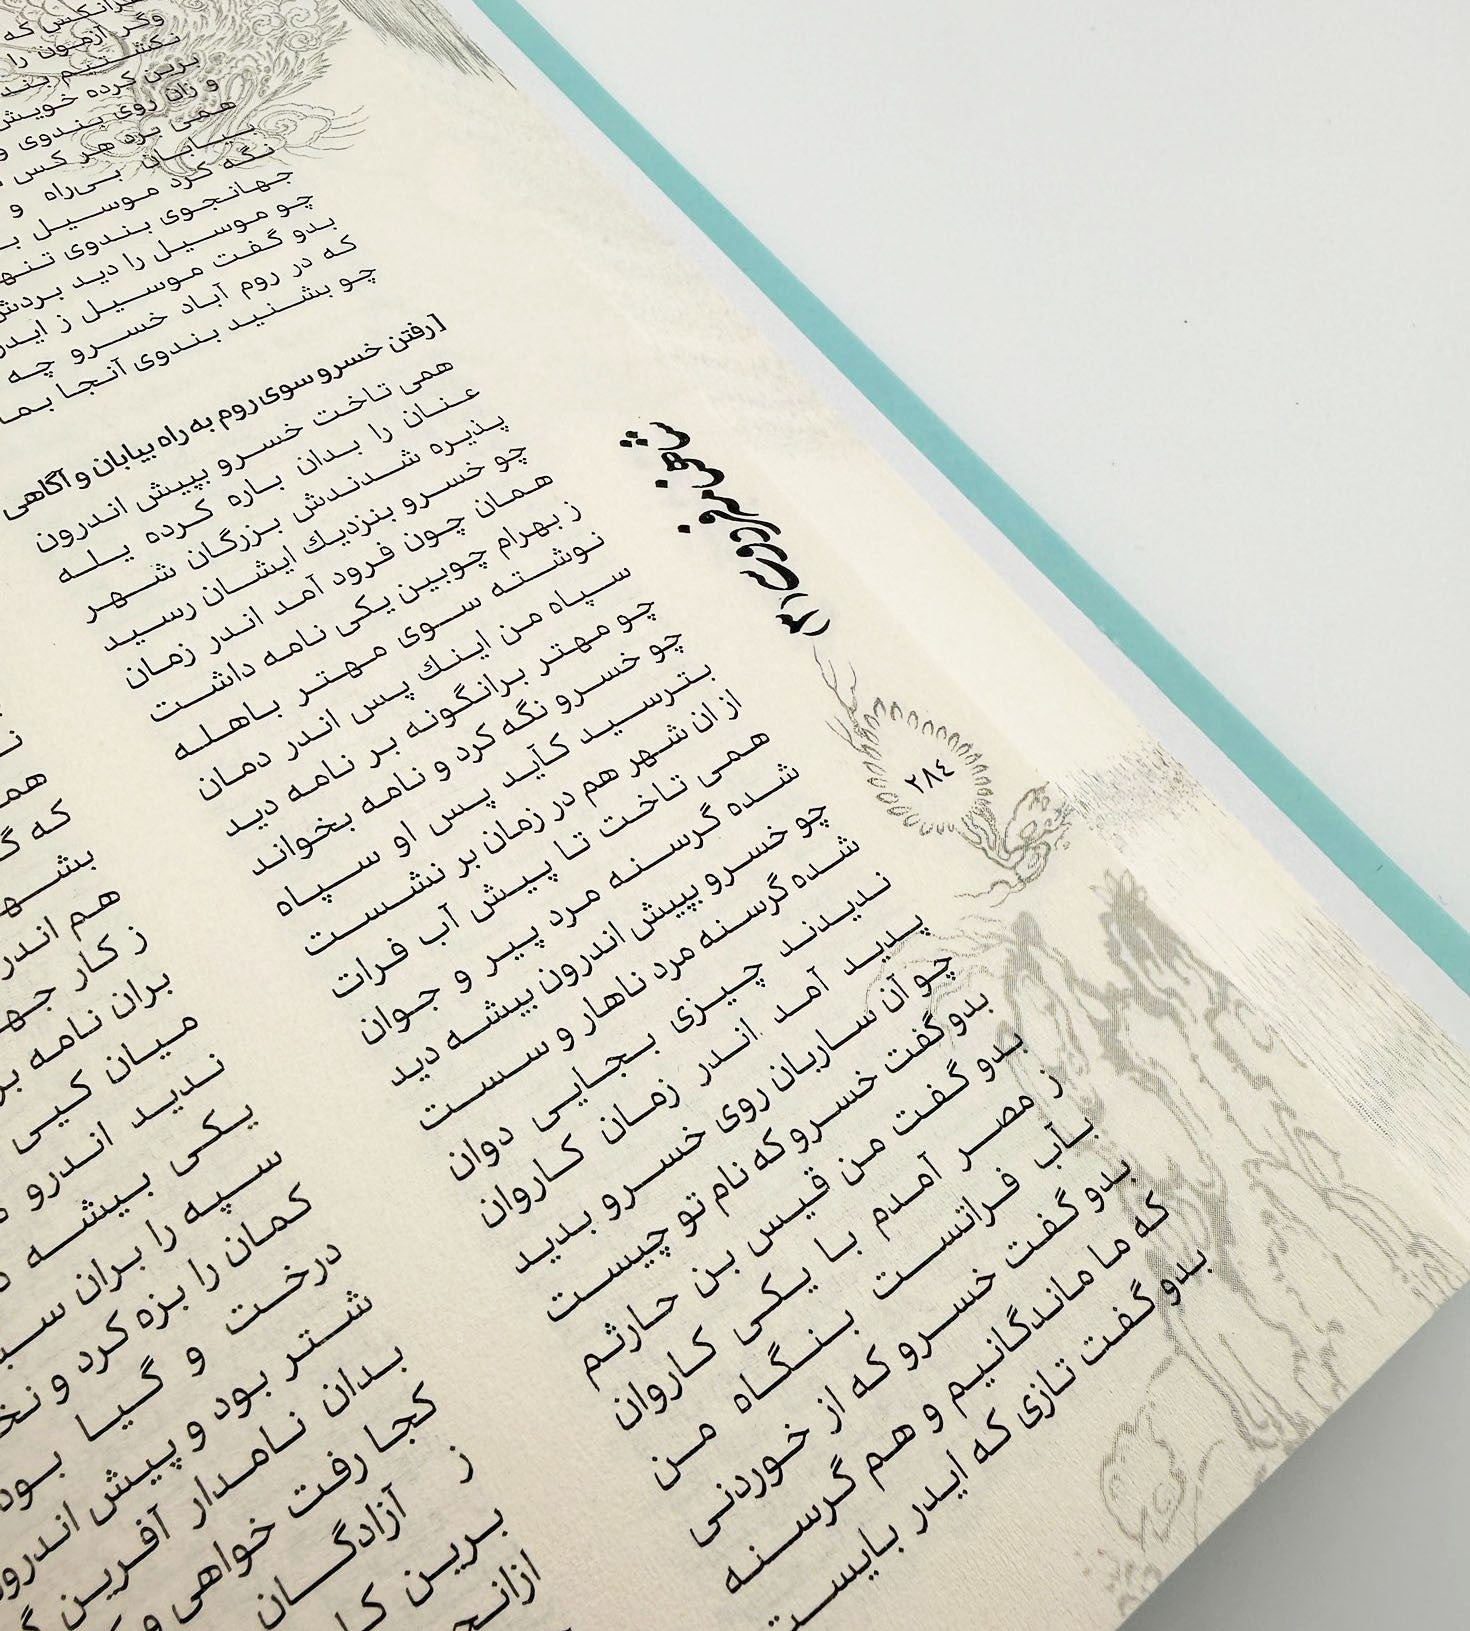 وگر آزمون را
نکشتیم بند
برین کرده خویش
و زان روی بندوی و
همی برد هر کس
بیابان بی‌راه و
نگه کرد موسیل
جهانجوی بندوی تنها
چو موسیل را دید بردش
بدو گفت موسیل ز ایدر
که در روم آباد خسرو چه
چو بشنید بندوی آنجا بما
[رفتن خسرو سوی روم به راه بیابان و آگاهی
همی تاخت خسرو بپیش اندرون
عنان را بدان باره کرده یله
پذیره شدندش بزرگان شهر
چو خسرو بنزدیك ایشان رسید
همان چون فرود آمد اندر زمان
ز بهرام چوبین یکی نامه داشت
نوشته سوی مهتر باهله
سپاه من اینك پس اندر دمان
چو مهتر برانگونه بر نامه دید
چو خسرو نگه کرد و نامه بخواند
بترسید کآید پس او سپاه
از ان شهر هم در زمان بر نشست
همی تاخت تا پیش آب فرات
شده گرسنه مرد پیر و جوان
چو خسرو بپیش اندرون بیشه دید
شده گرسنه مرد ناهار و سست
ندیدند چیزی بجایی دوان
پدید آمد اندر زمان کاروان
چو آن ساربان روی خسرو بدید
بدو گفت خسرو که نام تو چیست
بدو گفت من قیس بن حارثم
ز مصر آمدم با یکی کاروان
بآب فراتست بنگاه من
بدو گفت خسرو که از خوردنی
که ما ماندگانیم و هم گرسنه
بدو گفت تازی که ایدر بایست
که گ
بشه
هم اندر
ز کار جه
بران نامه بر
میان کیی
ندید اندرو
یکی بیشه
سپه را بران سب
کمان را بزه کرد و نخ
درخت و گیا بود
شتر بود و پیش اندرو
بدان نامدار آفرین گ
کجا رفت خواهی و
ز آزادگان
برین کا
ازانج
٢٨٤